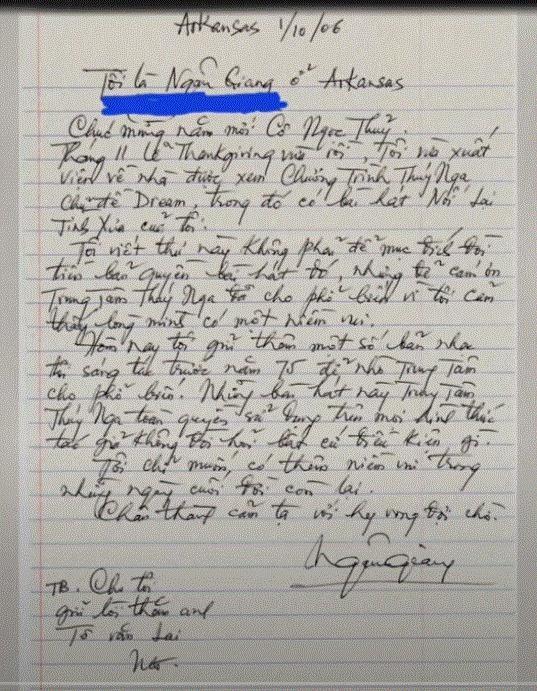 Arkansas 1/10/06
Tôi là Ngân Giang ở Arkansas
Chúc mừng năm mới Cô Ngọc Thuỷ.
Tháng 11 Lễ Thanksgiving vừa rồi, Tôi vừa xuất
viện về nhà được xem Chương Trình Thúy Nga
Chủ đề Dream, trong đó có bài hát Nối Lại
Tình Xưa của tôi.
Tôi viết thư này không phải để mục đích đòi
tiền bản quyền bài hát đó, nhưng để cám ơn
Trung Tâm Thúy Nga đã cho phổ biến vì tôi cảm
thấy lòng mình có một niềm vui.
Hôm nay tôi gửi thêm một số bản nhạc
tôi sáng tác trước năm 75 để nhờ Trung Tâm
cho phổ biến. Những bài hát này Trung Tâm
Thúy Nga toàn quyền sử dụng trên mọi hình thức
tác giả không đòi hỏi bất cứ điều kiện gì.
Tôi chỉ muốn, có thêm niềm vui trong
những ngày cuối đời còn lại.
Chân thành cảm tạ với hy vọng đợi chờ.
Ngân Giang
TB. Cho tôi
gửi lời thăm anh
Tô văn Lai